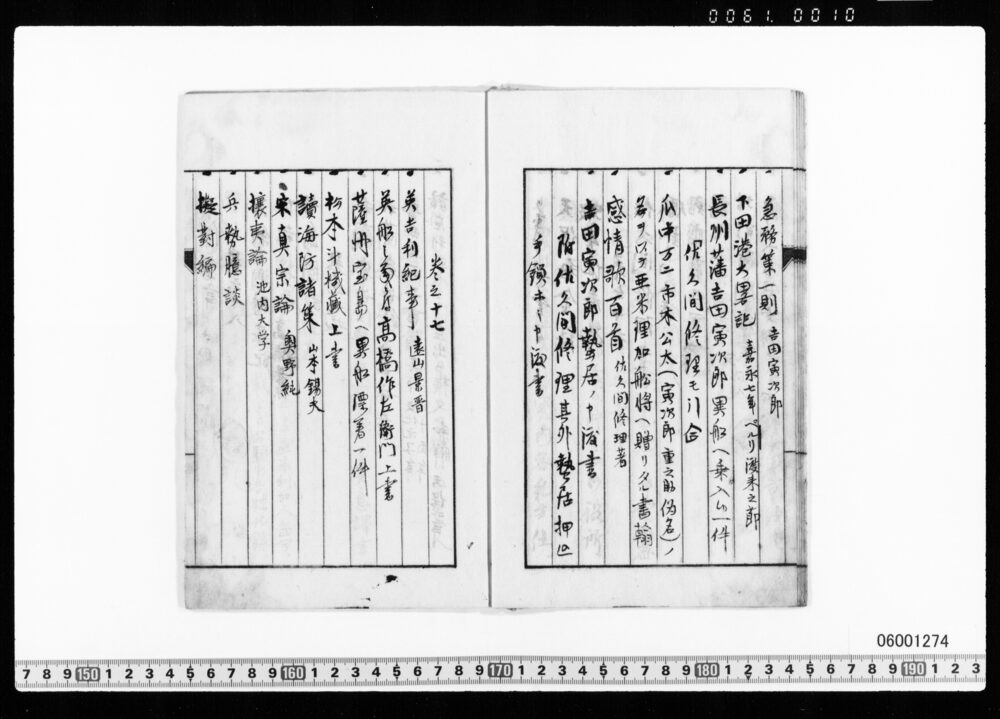 0061. 0010
急務策一則 吉田寅次郎
下田港大畧記 嘉永七年ペルリ渡来之節
長州藩吉田寅次郎異船ヘ乗入ル一件
佐久間修理モ引合
瓜中万二市木公太(寅次郎重之助偽名)ノ
名ヲ以テ亜米理加船将ヘ贈リタル書翰
感情歌百首 佐久間修理著
吉田寅次郎蟄居ノ申渡書
附佐久間修理其外蟄居押込
手鎖ホノ申渡書
巻之十七
英吉利紀事 遠山景晋
英船之 高橋作左衛門上書
薩州宝島ヘ異船漂着一件
松本斗機蔵上書
讀海防諸策 山本錫夫
宋真宗論 奥野純
攘夷論 池内大学
兵勢臆談
擬對編
06001274
7 8 9 150 1 2 3 4 5 6 7 8 9 160 1 2 3 4 5 6 7 8 9 170 1 2 3 4 5 6 7 8 9 180 1 2 3 4 5 6 7 8 9 190 1 2 3